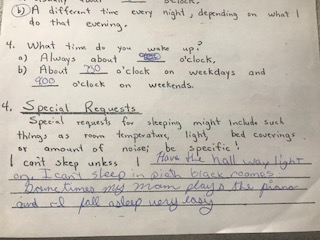 a) Usually about ___ o'clock.
(b) A different time every night, depending on what I
do that evening.
4. What time do you wake up?
a) Always about o'clock.
b) About 730 o'clock on weekdays and
900 o'clock on weekends.
4. Special Requests
Special requests for sleeping might include such
things as room temperature, light, bed coverings
or amount of noise; be specific!
I can't sleep unless I Have the hall way light
on, I can't sleep in pich black roomes
Sometimes my mom plays the piano
and I fall asleep very easy